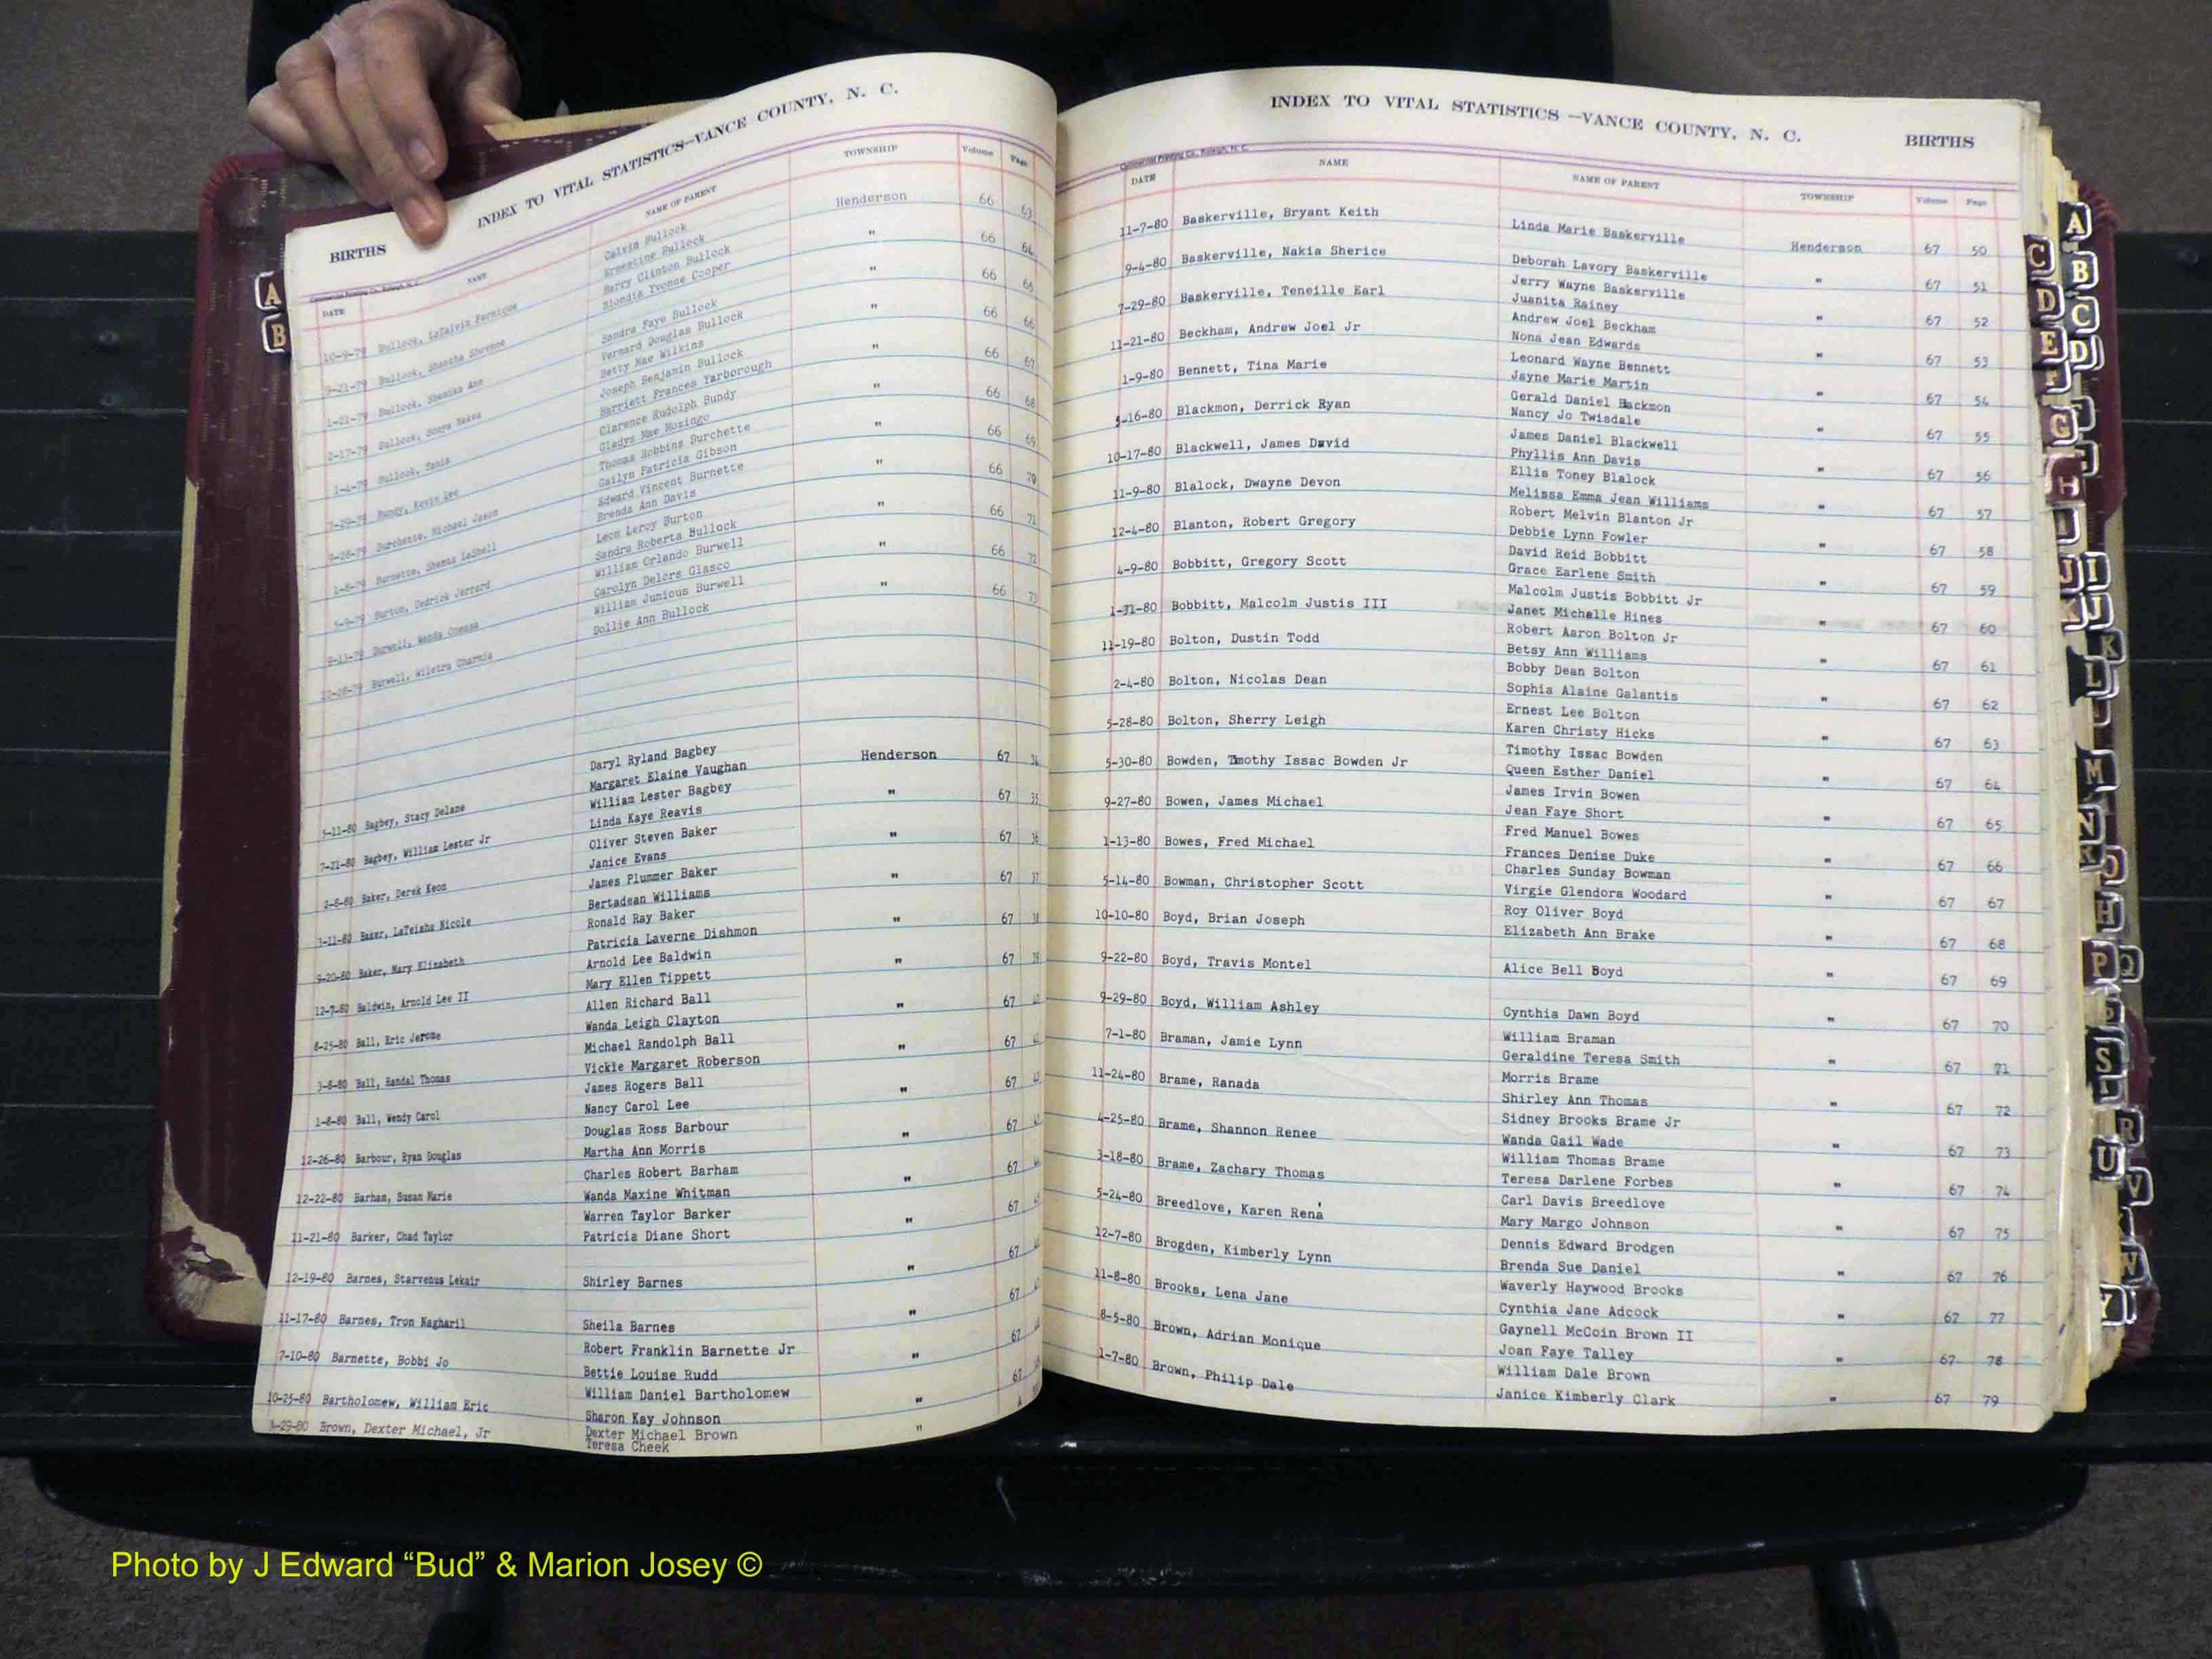 INDEX TO VITAL STATISTICS—VANCE COUNTY, N. C.
BIRTHS
DATE NAME NAME OF PARENT TOWNSHIP Volume Page
10-9-79 Bullock, LaCalvin Fernique Calvin Bullock Henderson 66 63
Ernestine Bullock
9-21-79 Bullock, Shantha Shevonne Harry Clinton Bullock " 66 64
Blondie Yvonne Cooper
1-21-79 Bullock, Shemika Ann Sandra Faye Bullock " 66 65
2-17-79 Bullock, Sonya Vernard Douglas Bullock " 66 66
Betty Mae Wilkins
1-4-79 Bullock, Tania Joseph Benjamin Bullock " 66 67
Harriett Frances Yarborough
Bundy, Kevin Lee Clarence Rudolph Bundy " 66 68
Gladys Mae Mozingo
9-28-79 Burchette, Michael Jason Thomas Robbins Burchette " 66 69
Gailyn Patricia Gibson
1-8-79 Burnette, Shenna LaShell Edward Vincent Burnette " 66 70
Brenda Ann Davis
5-9-79 Burton, Dedrick Jerrard Leon Leroy Burton " 66 71
Sandra Roberta Bullock
9-13-79 Burwell, Wanda William Orlando Burwell " 66 72
Carolyn Delors Glasco
12-28-79 Burwell, Wiletra Charmis William Junious Burwell " 66 73
Dollie Ann Bullock
5-11-80 Bagbey, Stacy Delane Daryl Ryland Bagbey Henderson 67 34
Margaret Elaine Vaughan
7-21-80 Bagbey, William Lester Jr William Lester Bagbey " 67 35
Linda Kaye Reavis
2-8-80 Baker, Derek Keon Oliver Steven Baker " 67 36
Janice Evans
3-11-80 Baker, LaTeisha Nicole James Plummer Baker " 67 37
Bertadean Williams
9-20-80 Baker, Mary Elizabeth Ronald Ray Baker " 67 38
Patricia Laverne Dishmon
12-7-80 Baldwin, Arnold Lee II Arnold Lee Baldwin " 67 39
Mary Ellen Tippett
8-25-80 Ball, Eric Jerome Allen Richard Ball " 67
Wanda Leigh Clayton
3-8-80 Ball, Randal Thomas Michael Randolph Ball " 67
Vickie Margaret Roberson
1-8-80 Ball, Wendy Carol James Rogers Ball " 67
Nancy Carol Lee
12-26-80 Barbour, Ryan Douglas Douglas Ross Barbour " 67
Martha Ann Morris
12-22-80 Barham, Susan Marie Charles Robert Barham " 67
Wanda Maxine Whitman
11-21-80 Barker, Chad Taylor Warren Taylor Barker " 67
Patricia Diane Short
12-19-80 Barnes, Starvenus Lekair Shirley Barnes " 67
11-17-80 Barnes, Tron Nagharil Sheila Barnes " 67
7-10-80 Barnette, Bobbi Jo Robert Franklin Barnette Jr " 67
Bettie Louise Rudd
10-25-80 Bartholomew, William Eric William Daniel Bartholomew " 67
Sharon Kay Johnson
4-29-80 Brown, Dexter Michael, Jr Dexter Michael Brown "
Teresa Cheek
INDEX TO VITAL STATISTICS —VANCE COUNTY, N. C.
BIRTHS
Commercial Printing Co., Raleigh, N. C.
DATE NAME NAME OF PARENT TOWNSHIP Volume Page
11-7-80 Baskerville, Bryant Keith Linda Marie Baskerville Henderson 67 50
9-4-80 Baskerville, Nakia Sherice Deborah Lavory Baskerville " 67 51
7-29-80 Baskerville, Teneille Earl Jerry Wayne Baskerville " 67 52
Juanita Rainey
11-21-80 Beckham, Andrew Joel Jr Andrew Joel Beckham " 67 53
Nona Jean Edwards
1-9-80 Bennett, Tina Marie Leonard Wayne Bennett " 67 54
Jayne Marie Martin
5-16-80 Blackmon, Derrick Ryan Gerald Daniel Backmon " 67 55
Nancy Jo Twisdale
10-17-80 Blackwell, James David James Daniel Blackwell " 67 56
Phyllis Ann Davis
11-9-80 Blalock, Dwayne Devon Ellis Toney Blalock " 67 57
Melissa Emma Jean Williams
12-4-80 Blanton, Robert Gregory Robert Melvin Blanton Jr " 67 58
Debbie Lynn Fowler
4-9-80 Bobbitt, Gregory Scott David Reid Bobbitt " 67 59
Grace Earlene Smith
1-31-80 Bobbitt, Malcolm Justis III Malcolm Justis Bobbitt Jr " 67 60
Janet Michelle Hines
11-19-80 Bolton, Dustin Todd Robert Aaron Bolton Jr " 67 61
Betsy Ann Williams
2-4-80 Bolton, Nicolas Dean Bobby Dean Bolton " 67 62
Sophia Alaine Galantis
5-28-80 Bolton, Sherry Leigh Ernest Lee Bolton " 67 63
Karen Christy Hicks
5-30-80 Bowden, Tmothy Issac Bowden Jr Timothy Issac Bowden " 67 64
Queen Esther Daniel
9-27-80 Bowen, James Michael James Irvin Bowen " 67 65
Jean Faye Short
1-13-80 Bowes, Fred Michael Fred Manuel Bowes " 67 66
Frances Denise Duke
5-14-80 Bowman, Christopher Scott Charles Sunday Bowman " 67 67
Virgie Glendora Woodard
10-10-80 Boyd, Brian Joseph Roy Oliver Boyd " 67 68
Elizabeth Ann Brake
9-22-80 Boyd, Travis Montel Alice Bell Boyd " 67 69
9-29-80 Boyd, William Ashley Cynthia Dawn Boyd " 67 70
7-1-80 Braman, Jamie Lynn William Braman " 67 71
Geraldine Teresa Smith
11-24-80 Brame, Ranada Morris Brame " 67 72
Shirley Ann Thomas
4-25-80 Brame, Shannon Renee Sidney Brooks Brame Jr " 67 73
Wanda Gail Wade
3-18-80 Brame, Zachary Thomas William Thomas Brame " 67 74
Teresa Darlene Forbes
5-24-80 Breedlove, Karen Rena' Carl Davis Breedlove " 67 75
Mary Margo Johnson
12-7-80 Brogden, Kimberly Lynn Dennis Edward Brodgen " 67 76
Brenda Sue Daniel
11-8-80 Brooks, Lena Jane Waverly Haywood Brooks " 67 77
Cynthia Jane Adcock
8-5-80 Brown, Adrian Monique Gaynell McCoin Brown II " 67 78
Joan Faye Talley
1-7-80 Brown, Philip Dale William Dale Brown " 67 79
Janice Kimberly Clark
A
B
A
B
C
D
C
D
E
G
H
I
J
J
K
L
M
N
O
H
P
Q
S
R
U
V
W
Y
Photo by J Edward “Bud” & Marion Josey ©